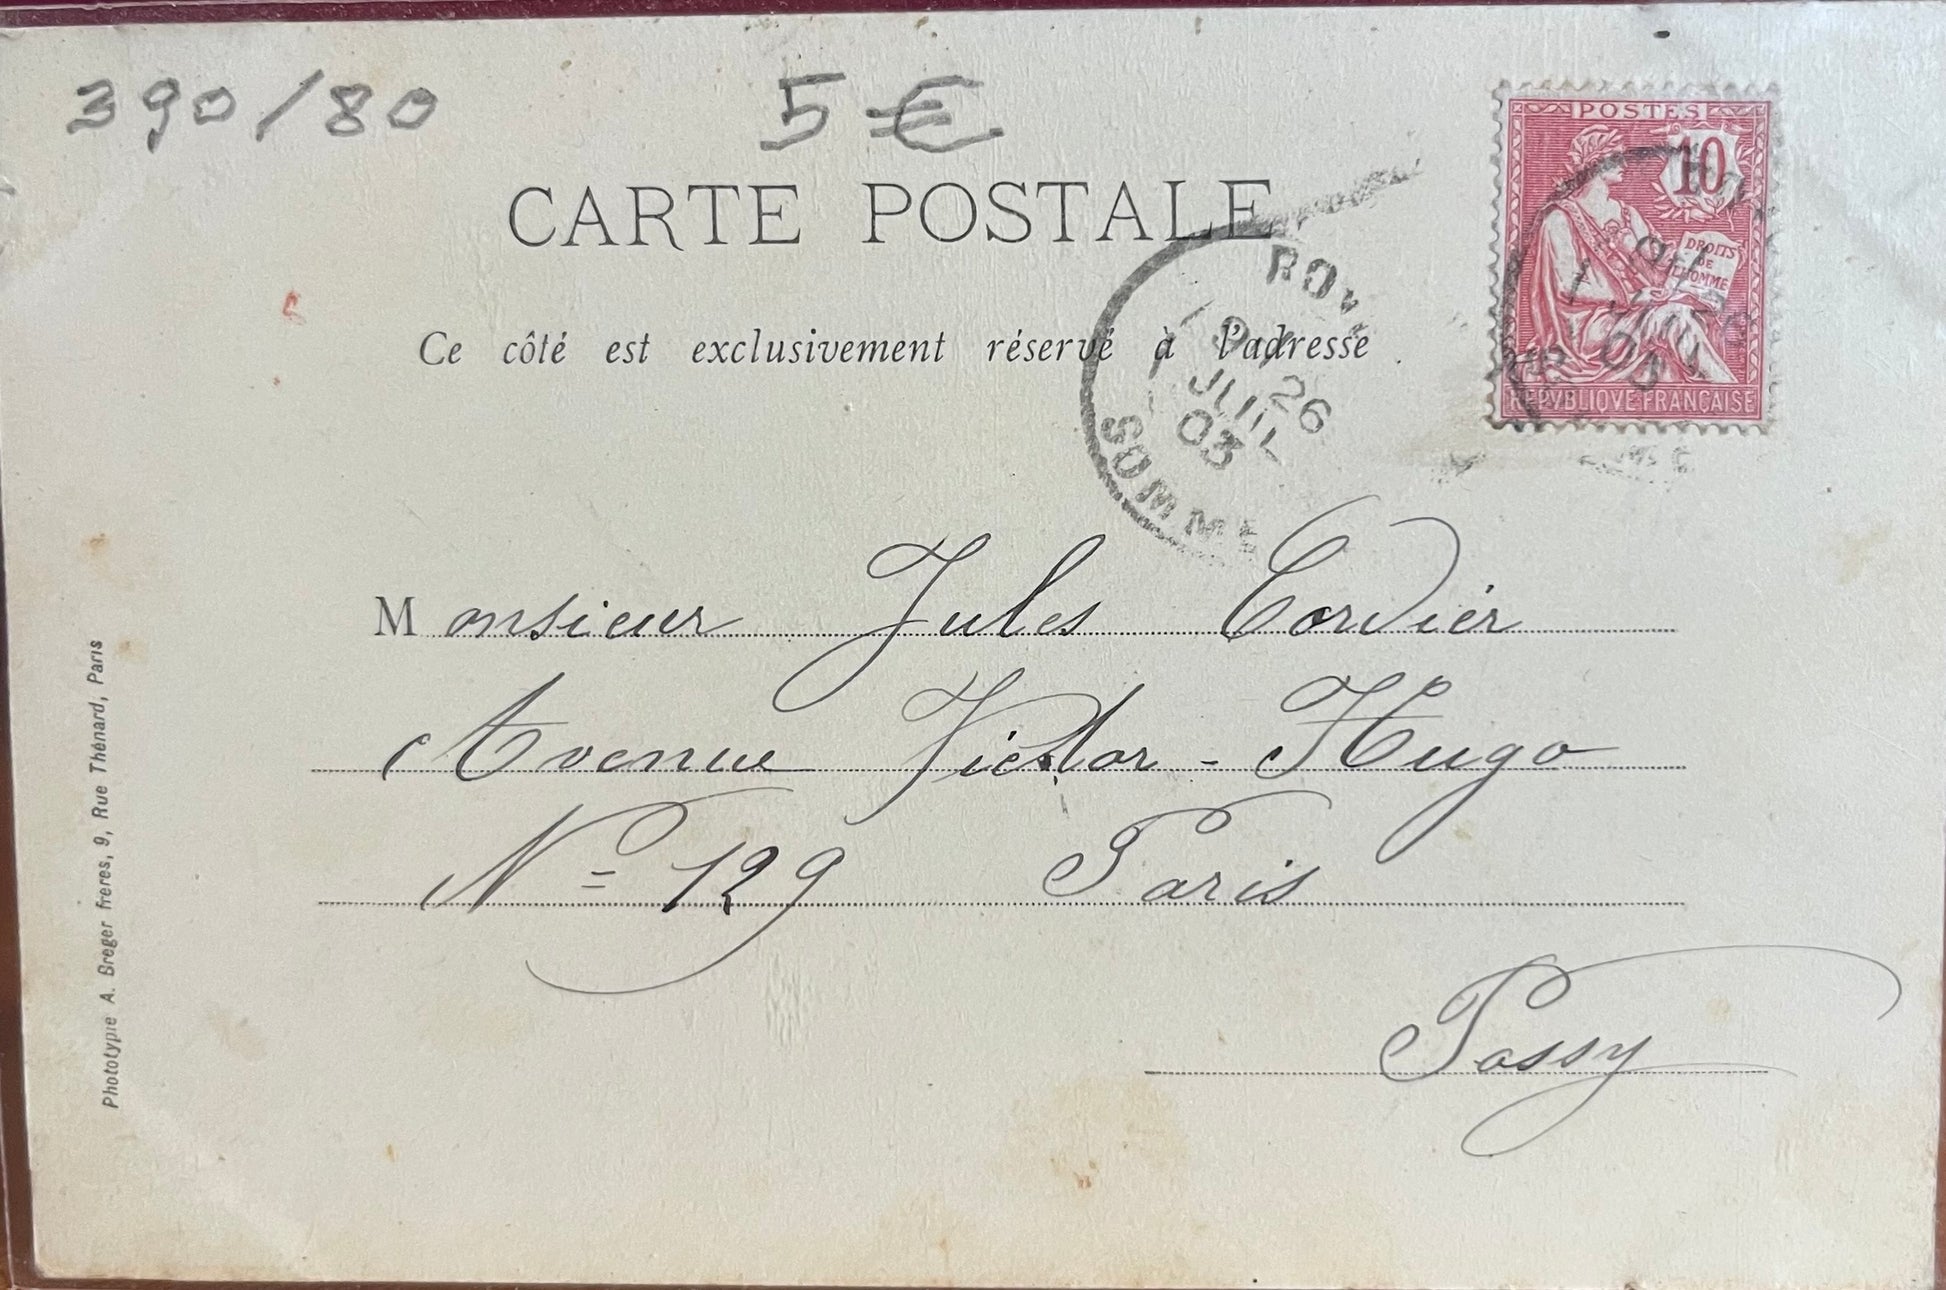 390/80 5€
POSTES
10
DROITS
DE
L'HOMME
REPVBLIQVE FRANÇAISE
CARTE POSTALE
Ce côté est exclusivement réservé à l'adresse
26
JUIL
03
SOMME
Monsieur Jules Cordier
Avenue Victor-Hugo
N= 129 Paris
Passy
Phototypie A. Breger frères, 9, Rue Thénard, Paris